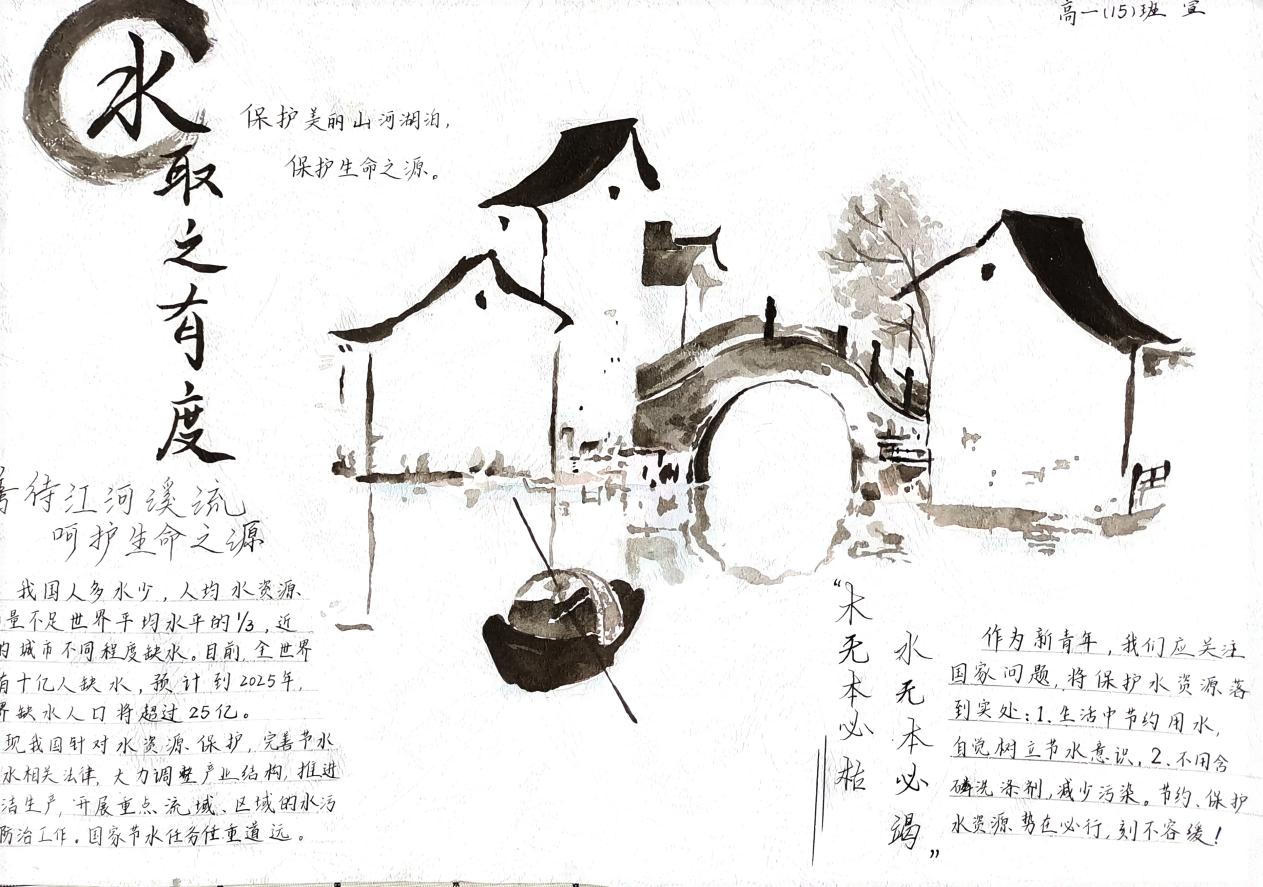 高一(15)班 宣
水取之有度
保护美丽山河湖泊,
保护生命之源。
善待江河溪流
呵护生命之源
我国人多水少,人均水资源
量不足世界平均水平的1/3,近
的城市不同程度缺水。目前,全世界
有十亿人缺水,预计到2025年,
界缺水人口将超过25亿。
现我国针对水资源保护,完善节水
水相关法律,大力调整产业结构,推进
洁生产,开展重点流域、区域的水污
防治工作。国家节水任务任重道远。
“木无本必枯
水无本必竭”
作为新青年,我们应关注
国家问题,将保护水资源落
到实处:1.生活中节约用水,
自觉树立节水意识,2.不用含
磷洗涤剂,减少污染。节约、保护
水资源势在必行,刻不容缓!